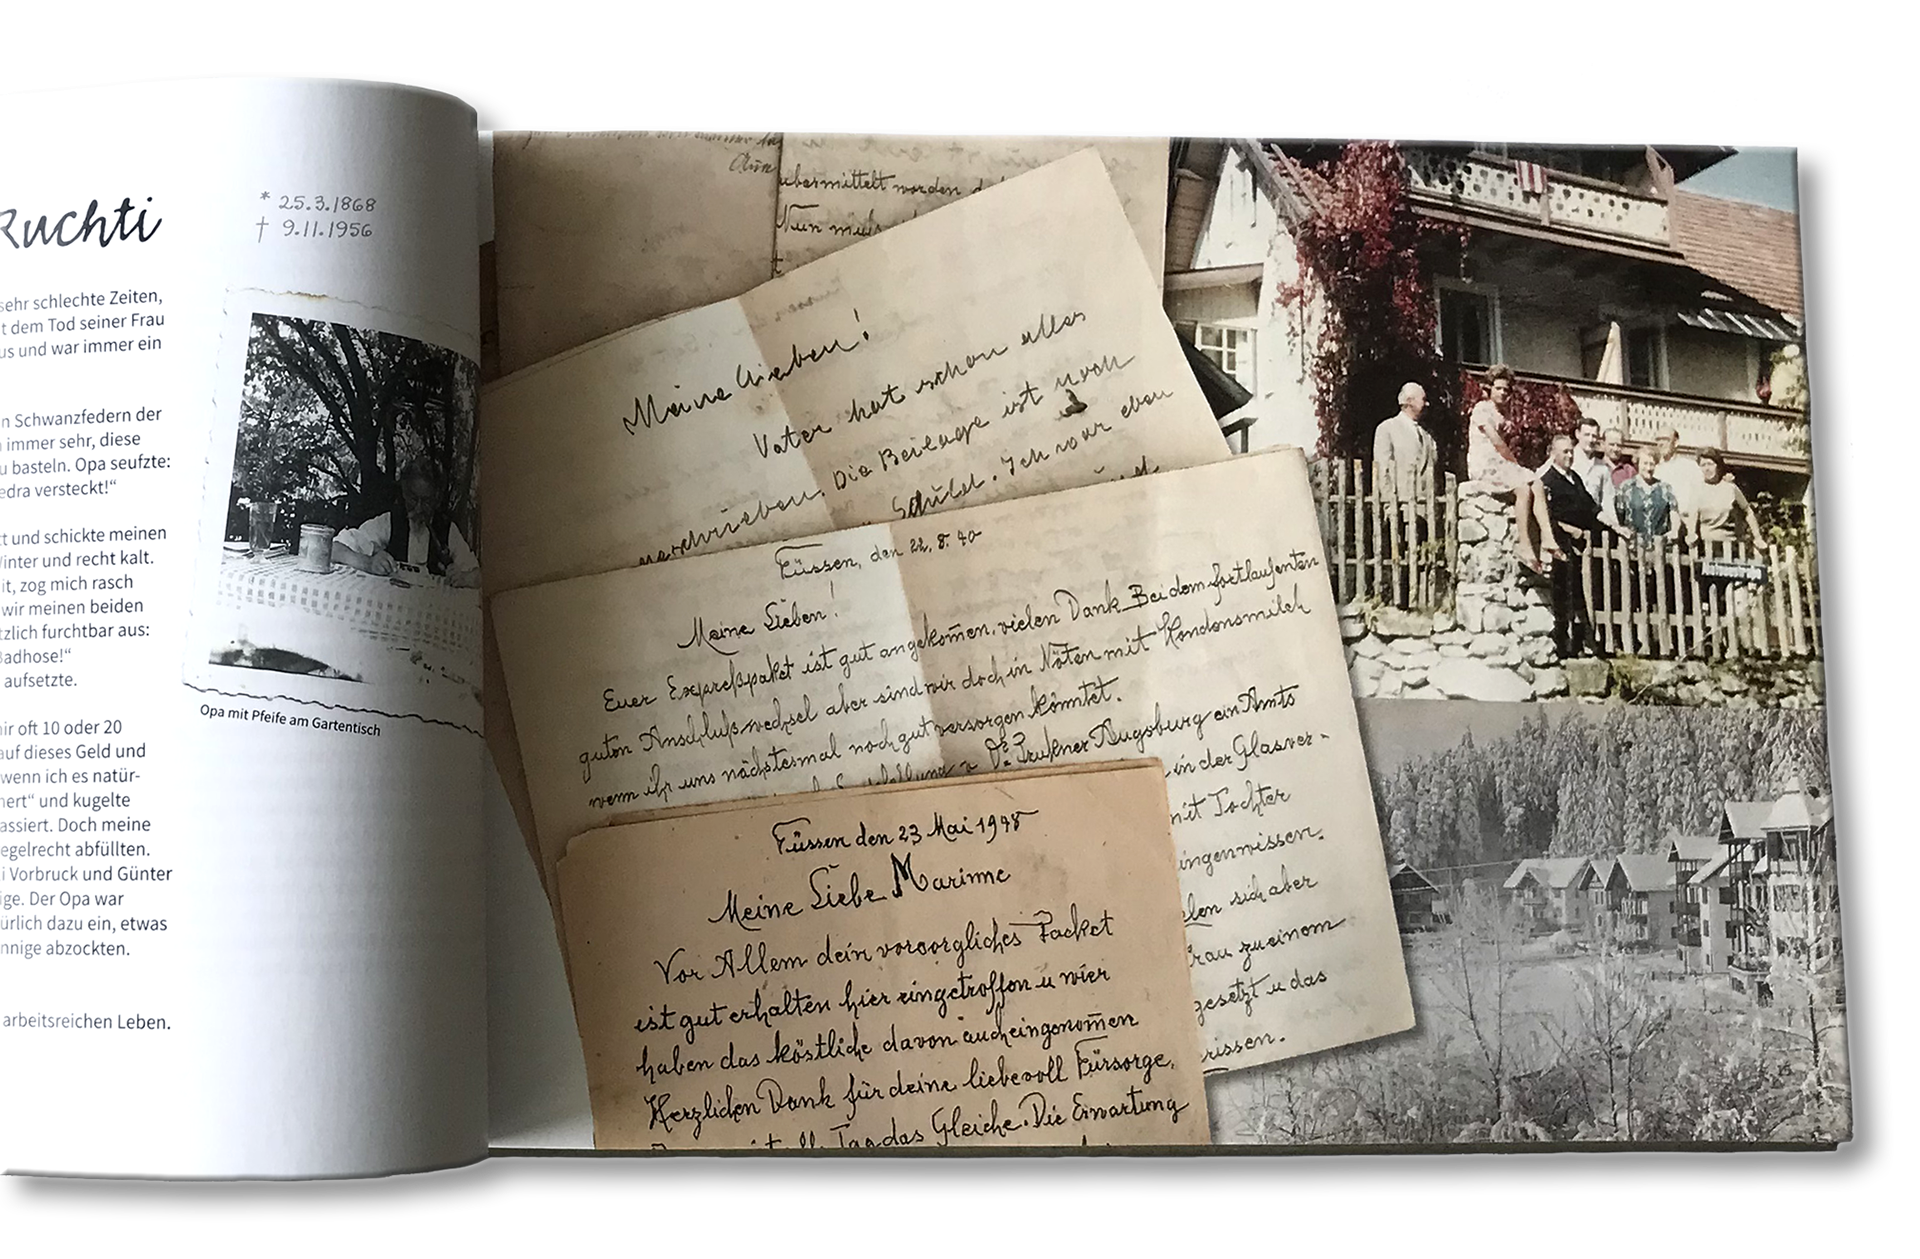 Ruchti
* 25.3.1868
† 9.11.1956
sehr schlechte Zeiten,
t dem Tod seiner Frau
us und war immer ein
n Schwanzfedern der
immer sehr, diese
u basteln. Opa seufzte:
edra versteckt!“
tt und schickte meinen
Winter und recht kalt.
it, zog mich rasch
wir meinen beiden
tzlich furchtbar aus:
Badhose!“
aufsetzte.
mir oft 10 oder 20
auf dieses Geld und
wenn ich es natür-
nert“ und kugelte
assiert. Doch meine
egelrecht abfüllten.
i Vorbruck und Günter
ige. Der Opa war
ürlich dazu ein, etwas
nnige abzockten.
arbeitsreichen Leben.
Opa mit Pfeife am Gartentisch
übermittelt worden
Nun muss
Meine Lieben!
Vater hat schon alles
Die Beilage ist von
Schuld. Ich war eben
Füssen, den 22.8.40
Meine Lieben!
Euer Expreßpaket ist gut angekom̄en, vielen Dank. Bei dem fortlaufenten
guten Anschlußwechsel aber sind wir doch in Nöten mit Kondonsmilch
wenn ihr uns nächstesmal noch gut versorgen könntet.
Augsburg ein Amts
in der Glasver-
mit Tochter
ungenwissen.
sich aber
Frau zu einem
gesetzt u das
rissen.
Füssen den 23 Mai 1948
Meine Liebe Marinne
Vor Allem dein vorsorgliches Packet
ist gut erhalten hier eingetroffen u wier
haben das köstliche davon auch eingenom̄en
Herzlichen Dank für deine liebevoll Fürsorge.
Tag das Gleiche. Die Erwartung